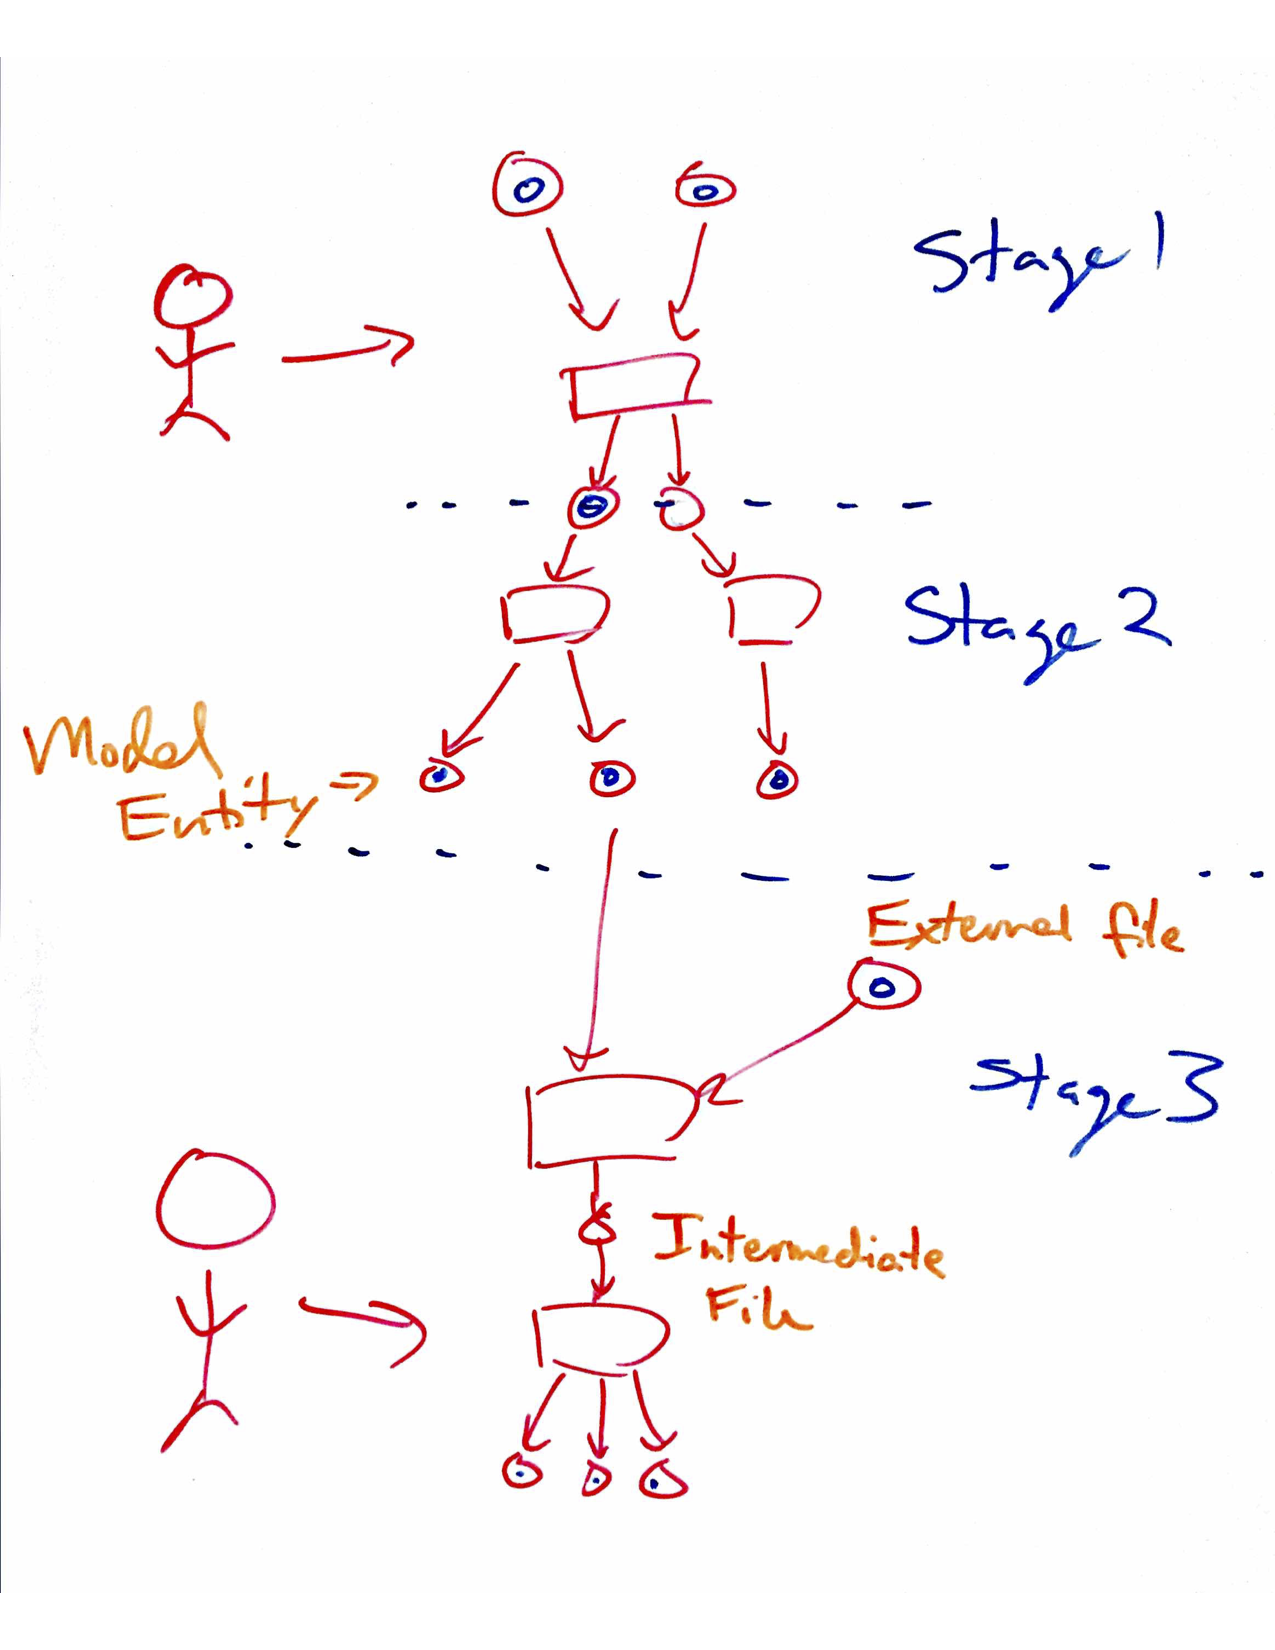 Stage 1
Stage 2
Model
Entity →
External file
Stage 3
Intermediate
File